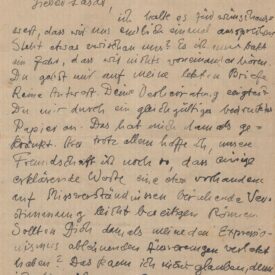 Lieber Lasar!
ich halte es für wünschens-
wert, dass wir uns endlich einmal aussprechen
Steht etwas zwischen uns? Es ist nun bald
ein Jahr, dass wir nichts voneinander hören.
Du gabst mir auf meine letzten Briefe
keine Antwort. Deine Verheiratung zeigtest
Du mir durch ein gleichgültig bedrucktes
Papier an. Das hat mich damals ge-
kränkt. Aber trotz allem hoffe ich, unsere
Freundschaft ist noch so, dass einige
erklärende Worte eine etwa vorhandene
auf Missverständnissen beruhende Ver-
stimmung leicht beseitigen können.
Sollten Dich damals meine den Expressio-
nismus ablehnenden Äusserungen verletzt
haben? Das kann ich nicht glauben, denn